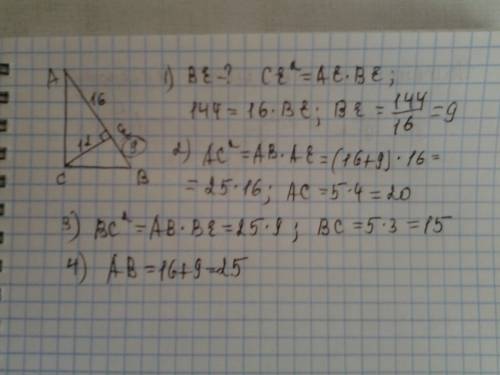 A
16
12
E
9
C
B
1) BE-? CE² = AE·BE;
144 = 16·BE; BE = 144/16 = 9
2) AC² = AB·AE = (16+9)·16 =
= 25·16; AC = 5·4 = 20
3) BC² = AB·BE = 25·9; BC = 5·3 = 15
4) AB = 16+9 = 25